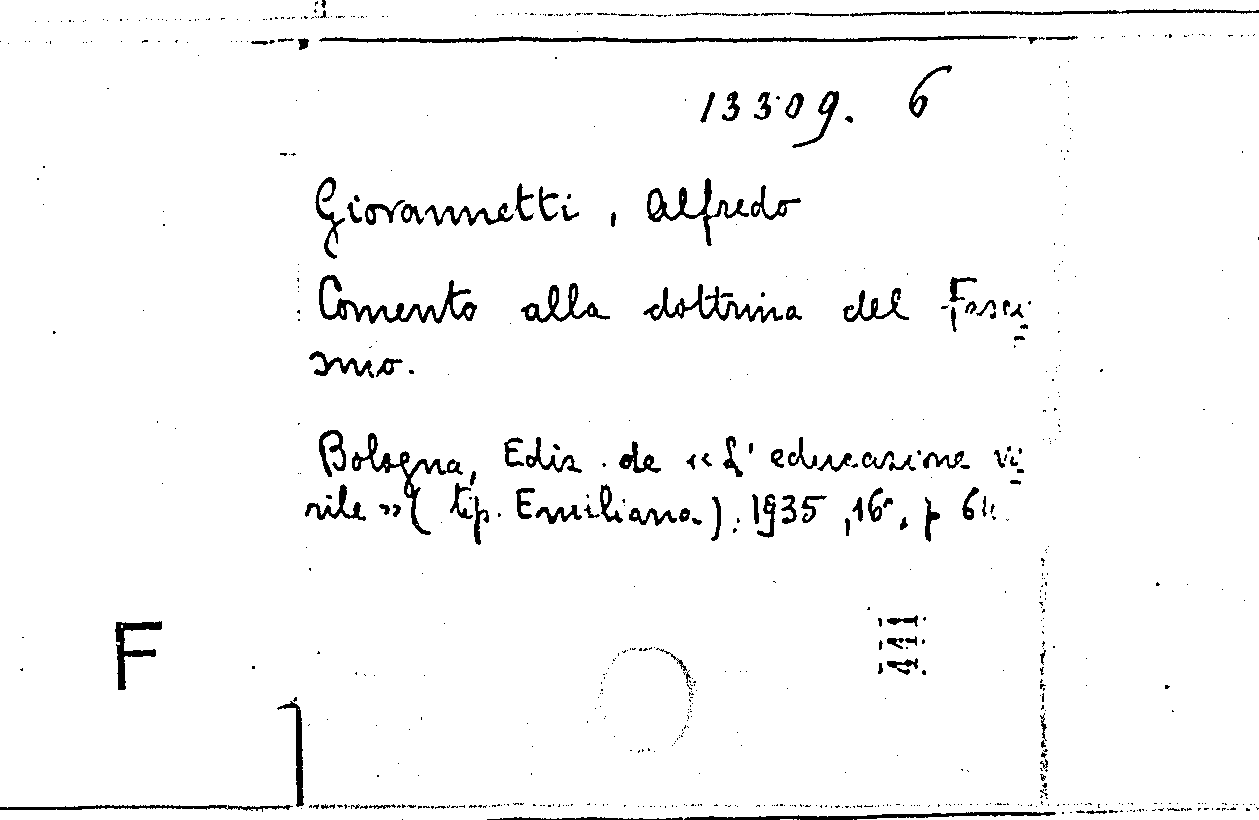 13309. 6
Giovannetti, Alfredo
Comento alla dottrina del Fasci=
smo.
Bologna, Ediz. de «L'educazione vi=
rile» (tip. Emiliana). 1935, 16°, p
F